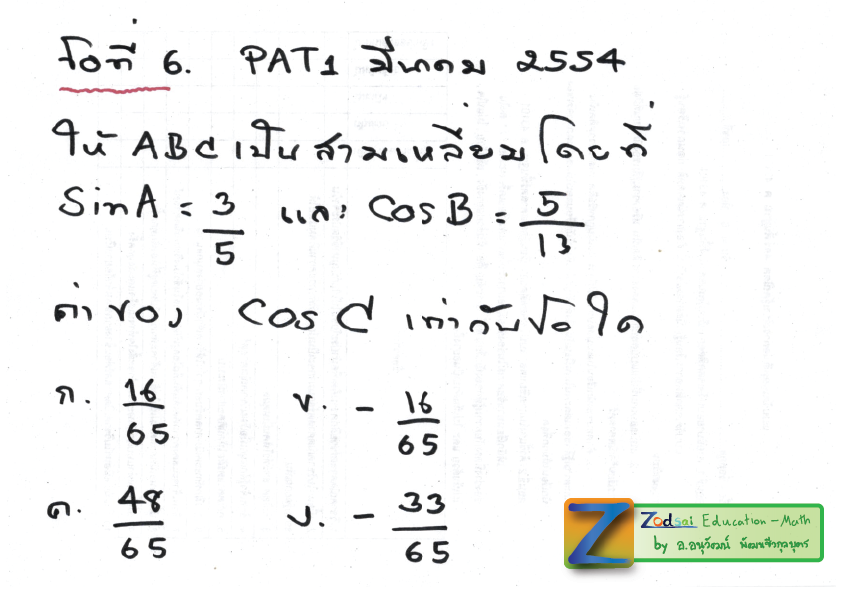 ข้อที่ 6. PAT1 มีนาคม 2554
ให้ ABC เป็นสามเหลี่ยมโดยที่
SinA = 3/5 และ CosB = 5/13
ค่าของ Cos C เท่ากับข้อใด
ก. 16/65 ข. - 16/65
ค. 48/65 ง. - 33/65
Zodsai Education - Math
by อ.อนุวัฒน์ พัฒนชีวกุลบุตร